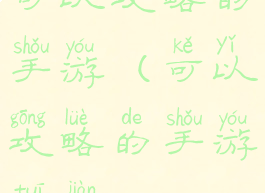 可以攻略的
shǒu yóu kě yǐ
手游（可以
gōng lüè de shǒu yóu
攻略的手游
tuī jiàn